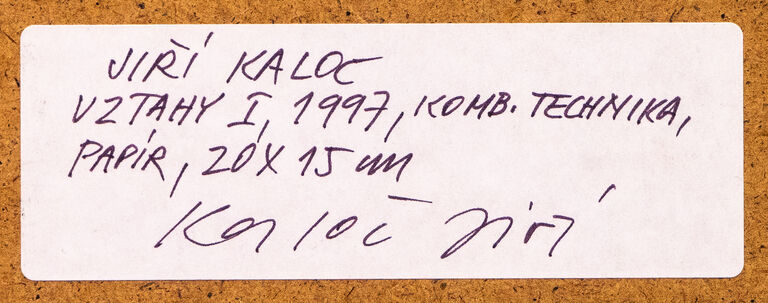 JIŘÍ KALOČ
VZTAHY I, 1997, KOMB. TECHNIKA,
PAPÍR, 20 X 15 cm
Kaloč Jiří